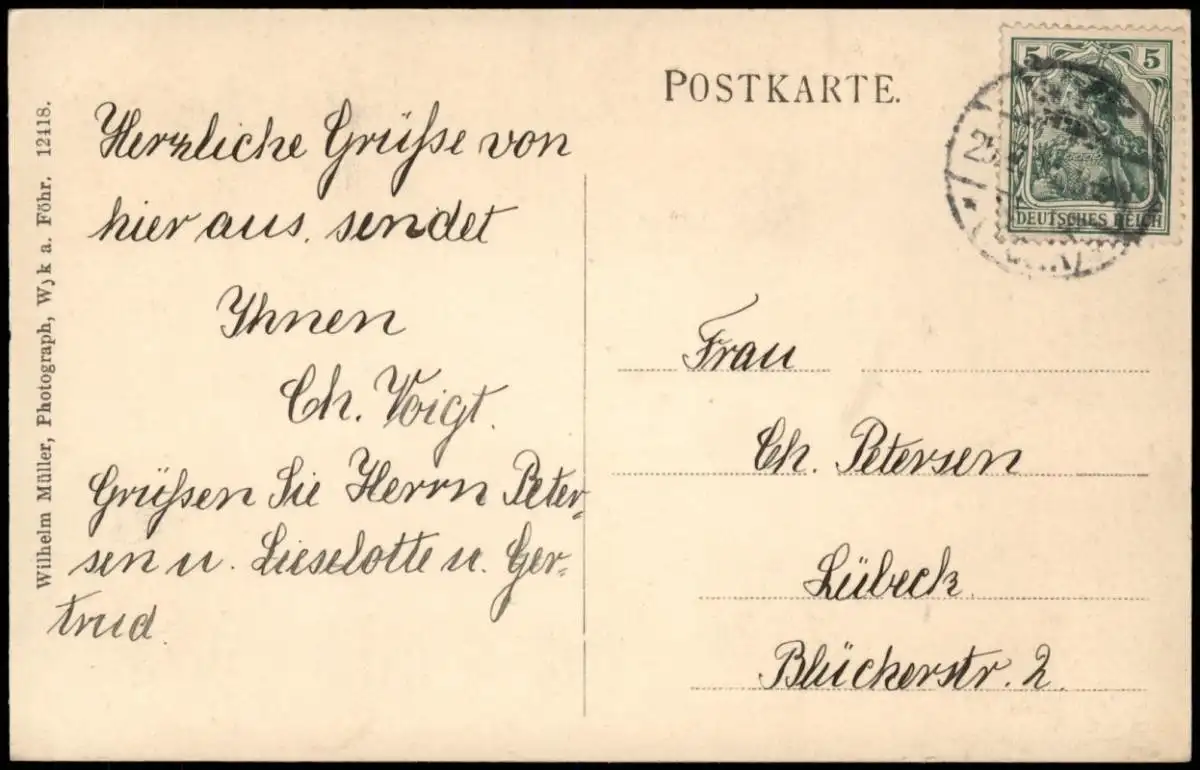 Wilhelm Müller, Photograph, Wyk a. Föhr. 12418.
Herzliche Grüße von
hier aus, sendet
Ihnen
Ch. Voigt.
Grüßen Sie Herrn Peter-
sen u. Lieselotte u. Ger-
trud.
POSTKARTE.
5 5
DEUTSCHES REICH
Frau
Ch. Petersen
Lübeck.
Blücherstr. 2.